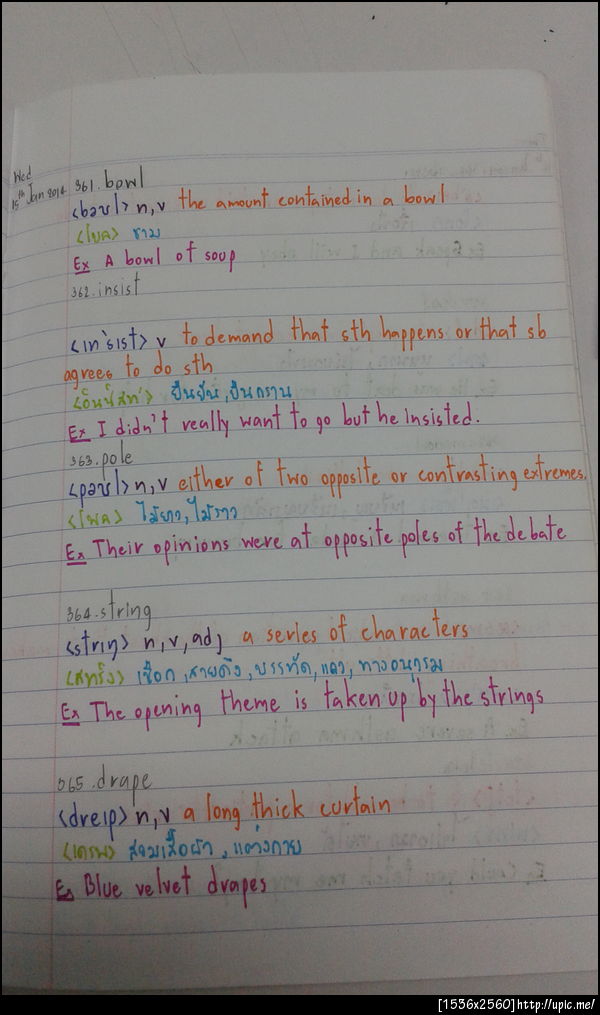 Wed
15th Jan 2014
361.bowl
<bəʊl> n,v the amount contained in a bowl
<โบล> ชาม
Ex A bowl of soup
362.insist
<ɪn'sɪst> v to demand that sth happens or that sb
agrees to do sth
<อินซิสท่> ยืนยัน,ยืนกราน
Ex I didn't really want to go but he insisted.
363.pole
<pəʊl> n,v either of two opposite or contrasting extremes.
<โพล> ไม้ยาว,ไม้ราว
Ex Their opinions were at opposite poles of the debate
364.string
<strɪŋ> n,v,adj a series of characters
<สทริง> เชือก,สายดึง,บรรทัด,แถว,ทางอนุกรม
Ex The opening theme is taken up by the strings
365.drape
<dreɪp> n,v a long thick curtain
<เดรพ> สวมเสื้อผ้า,แต่งกาย
Ex Blue velvet drapes
[1536x2560]http://upic.me/